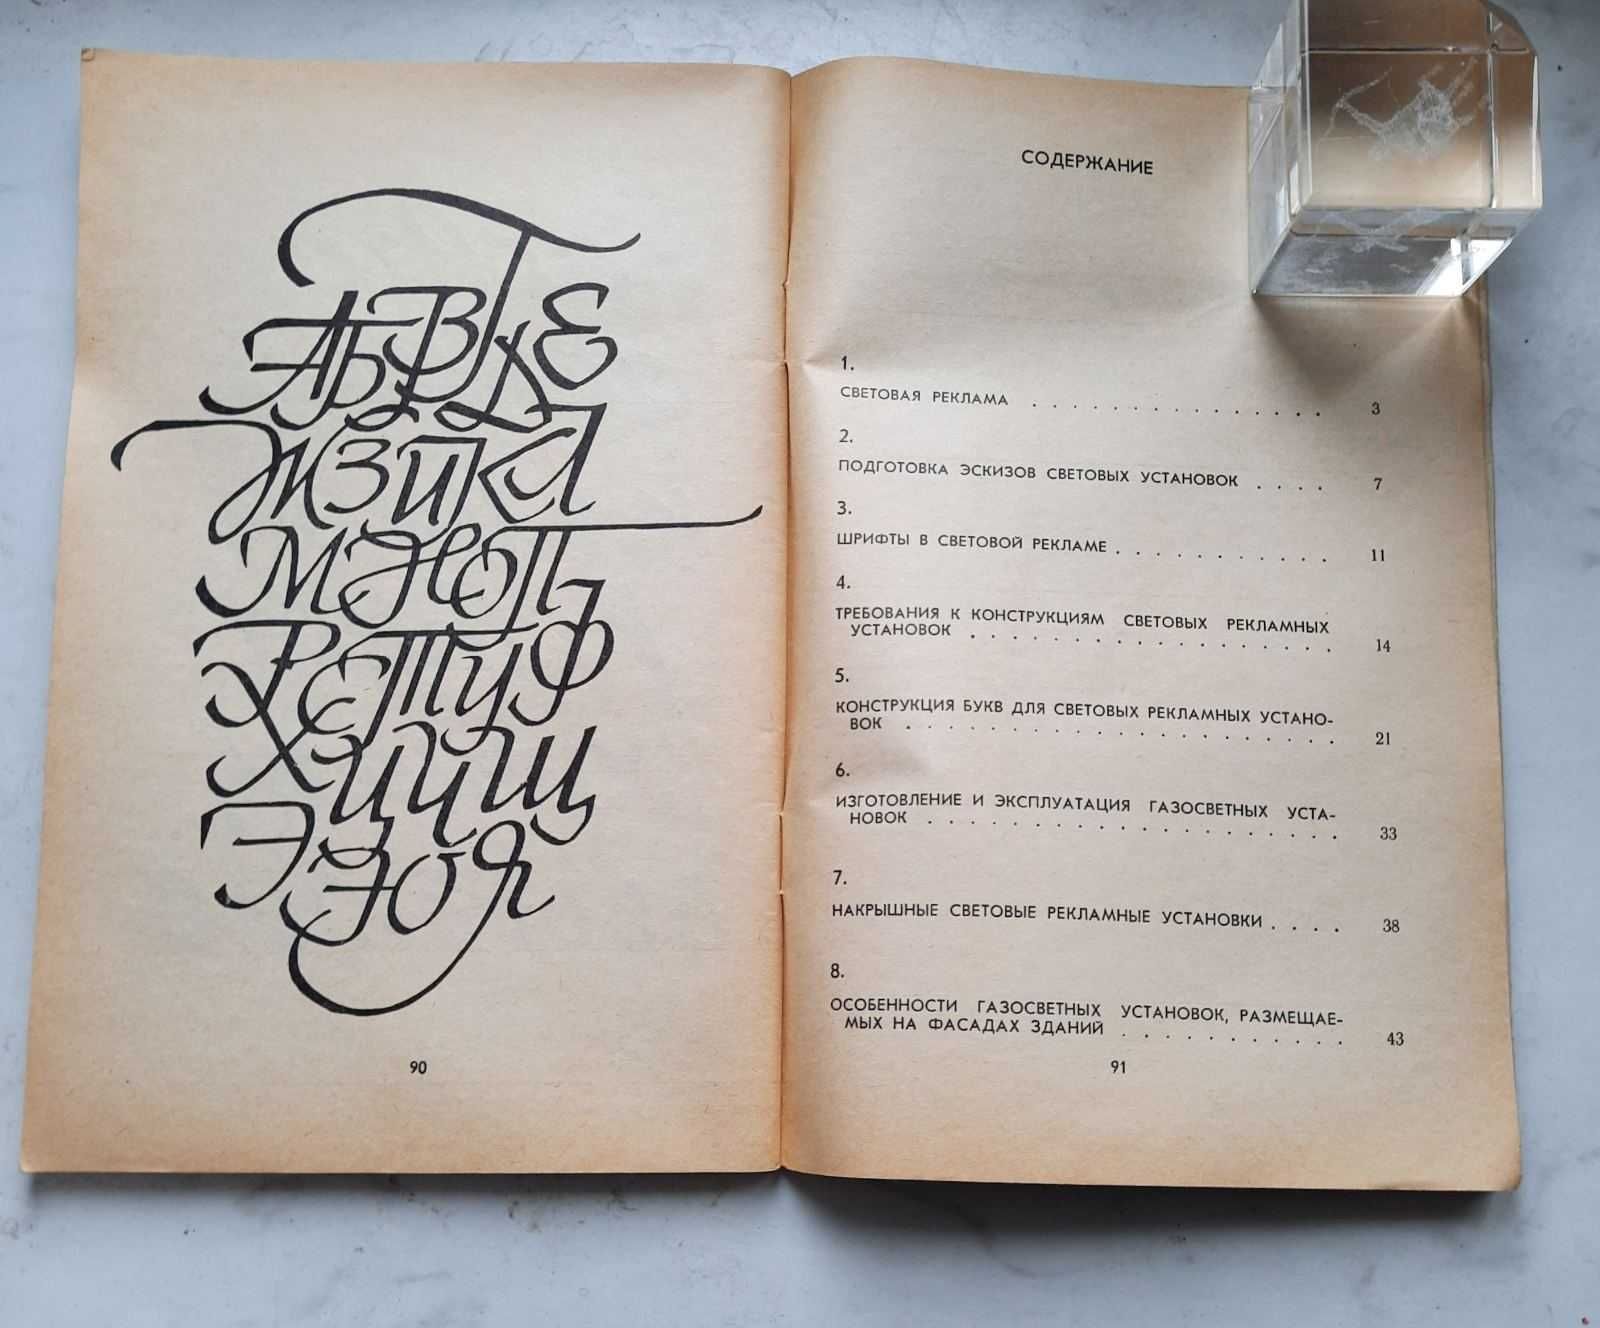 АБВГДЕ
ЖЗИКЛ
МНОП
РСТУФ
ХЦЧЩ
ЭЮЯ
90
СОДЕРЖАНИЕ
1.
СВЕТОВАЯ РЕКЛАМА . . . . . . . . . . . . . . . 3
2.
ПОДГОТОВКА ЭСКИЗОВ СВЕТОВЫХ УСТАНОВОК . . . . 7
3.
ШРИФТЫ В СВЕТОВОЙ РЕКЛАМЕ . . . . . . . . . . . 11
4.
ТРЕБОВАНИЯ К КОНСТРУКЦИЯМ СВЕТОВЫХ РЕКЛАМНЫХ
УСТАНОВОК . . . . . . . . . . . . . . . . . . 14
5.
КОНСТРУКЦИЯ БУКВ ДЛЯ СВЕТОВЫХ РЕКЛАМНЫХ УСТАНО-
ВОК . . . . . . . . . . . . . . . . . . . . . 21
6.
ИЗГОТОВЛЕНИЕ И ЭКСПЛУАТАЦИЯ ГАЗОСВЕТНЫХ УСТА-
НОВОК . . . . . . . . . . . . . . . . . . . . 33
7.
НАКРЫШНЫЕ СВЕТОВЫЕ РЕКЛАМНЫЕ УСТАНОВКИ . . . . 38
8.
ОСОБЕННОСТИ ГАЗОСВЕТНЫХ УСТАНОВОК, РАЗМЕЩАЕ-
МЫХ НА ФАСАДАХ ЗДАНИЙ . . . . . . . . . . . 43
91